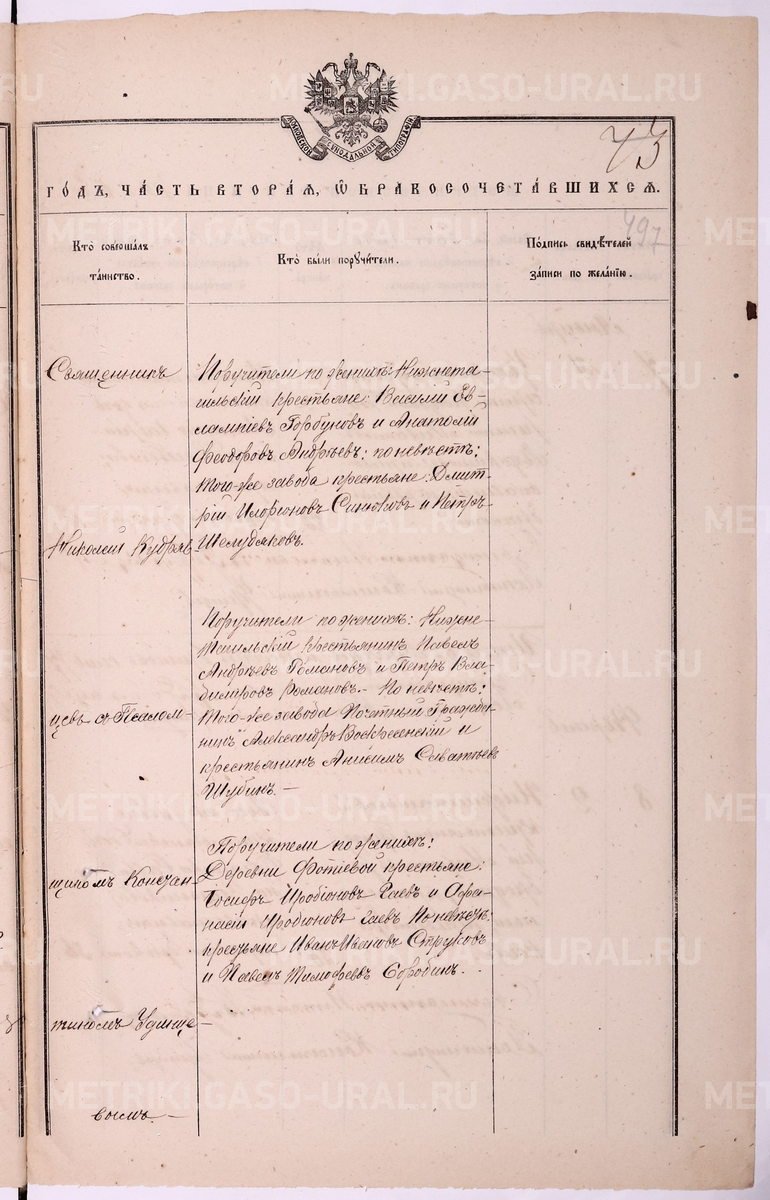 МОСКОВСКОЙ СѴНОДАЛЬНОЙ ТИПОГРАФІИ
73
ГО́ДЪ, ЧА́СТЬ ВТОРА́Я, Ѽ БРАКОСОЧЕТА́ВШИХСЯ.
497
Кто̀ соверша́лъ
та́инство.
Кто̀ бы́ли поручи́тели.
По́дпись свидѣ́телей
за́писи по жела́нію.
Священникъ
Николай Кудряв
цевъ съ Псалом-
щикомъ Констан-
тиномъ Удинце-
вымъ.-
Поручители по женихѣ: Нижнета-
гильскій крестьяне: Василій Ев-
лампіевъ Горбуновъ и Анатолій
Феодоровъ Андреевъ; по невѣстѣ:
того-же завода крестьяне: Дмит-
рій Иларіоновъ Синюковъ и Петръ
Шелудяковъ.
Поручители по женихѣ: Нижне-
Тагильскій крестьянинъ Павелъ
Андреевъ Романовъ и Петръ Вла-
димировъ Романовъ.- По невѣстѣ:
того-же завода Почетный Гражда-
нинъ Александръ Воскресенскій и
крестьянинъ Анисимъ Савватѣевъ
Шубинъ.-
Поручители по женихѣ:
Деревни Фотіевой крестьяне:
Іосифъ Иродіоновъ Гаевъ и Афа-
насій Иродіоновъ Гаевъ По невѣстѣ:
крестьяне Иванъ Ивановъ Струковъ
и Павелъ Тимофеевъ
METRIKI.GASO-URAL.RU